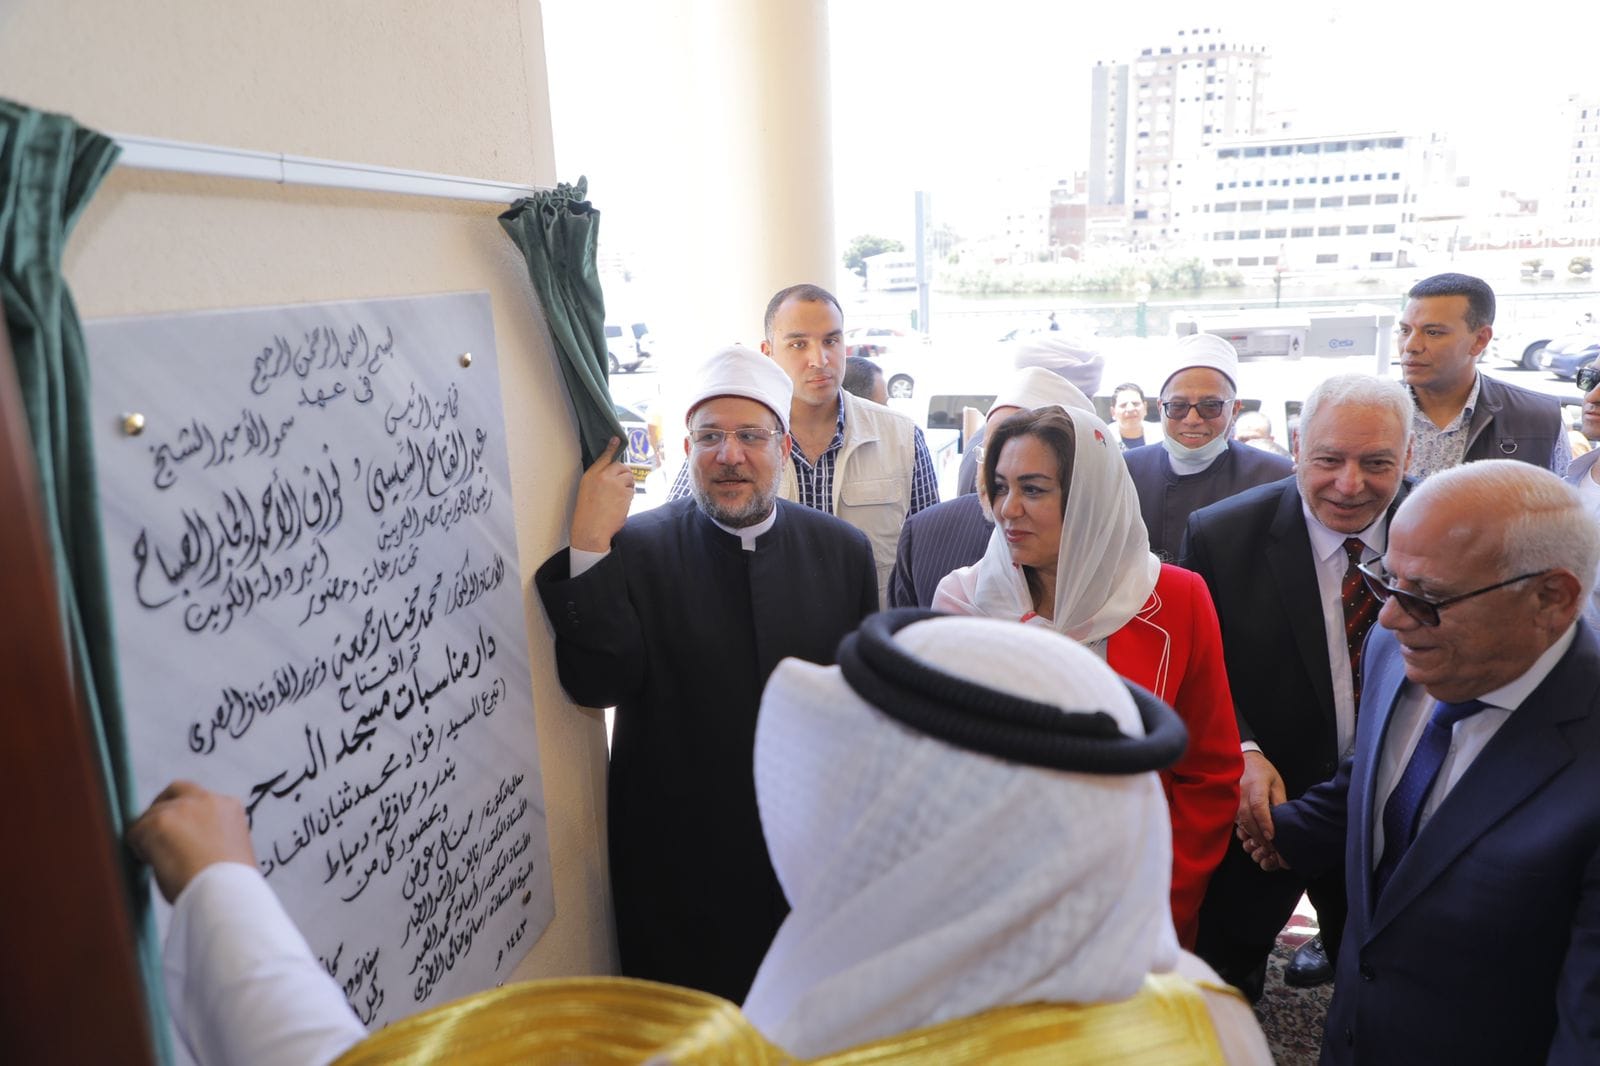 بسم الله الرحمن الرحيم
في عهد
فخامة الرئيس
عبد الفتاح السيسي
رئيس جمهورية مصر العربية
و
سمو الأمير الشيخ
نواف الأحمد الجابر الصباح
أمير دولة الكويت
تحت رعاية وحضور
الأستاذ الدكتور/ محمد مختار جمعة وزير الأوقاف المصرى
تم افتتاح
دار مناسبات مسجد البحر
(تبرع السيد/ فؤاد محمد ثنيان الغانم
بندر ومحافظة دمياط
وبحضور كل من
معالى الدكتورة/ منال عوض
الأستاذ الدكتور/ نايف راشد الطيار
الأستاذ الدكتور/ أسامة محمد العبد
١٤٤٣ هـ